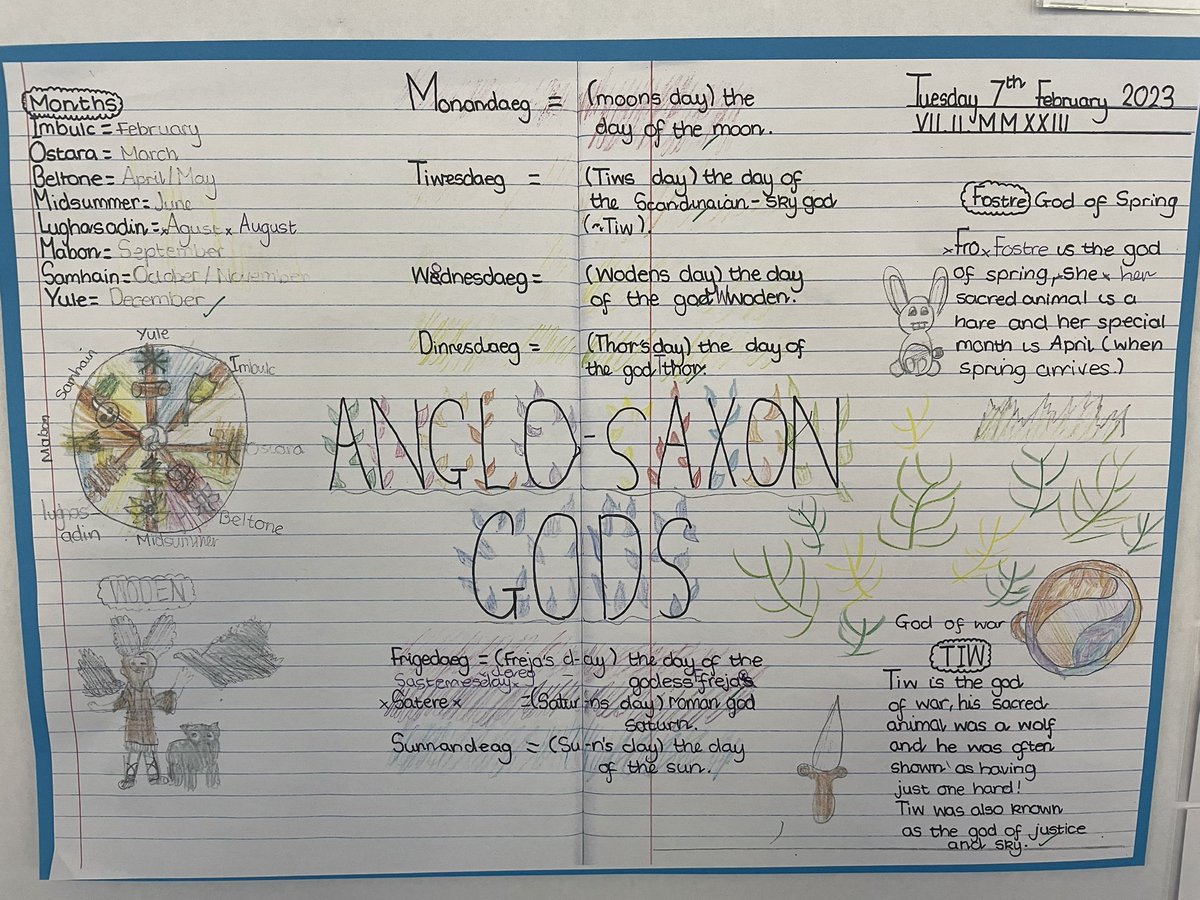 Months
Imbulc = February
Ostara = March
Beltone = April/May
Midsummer = June
Lughasadin = Agust x August
Mabon = September
Samhain = October / November
Yule = December
Yule
Imbulc
Ostara
Beltone
Midsummer
lughas
adin
Mabon
Samhain
WODEN
Monandaeg = (moons day) the
day of the moon.
Tiwesdaeg = (Tiws day) the day of
the Scandinaian - sky god
(~Tiw).
Wodnesdaeg = (Wodens day) the day
of the god Woden.
Dinresdaeg = (Thor's day) the day of
the god Thor.
ANGLO-SAXON
GODS
Frigedaeg = (Freja's d-ay) the day of the
godless Freja's
x Satere x = (Satur-ns day) roman god
saturn.
Sunnandeag = (Su-n's day) the day
of the sun.
Tuesday 7th February 2023
VII.II.MMXXIII
Fostre God of Spring
x Fro x Fostre is the god
of spring, x she x her
sacred animal is a
hare and her special
month is April (when
spring arrives.)
God of war
TIW
Tiw is the god
of war, his sacred
animal was a wolf
and he was often
shown as having
just one hand!
Tiw was also known
as the god of justice
and sky.